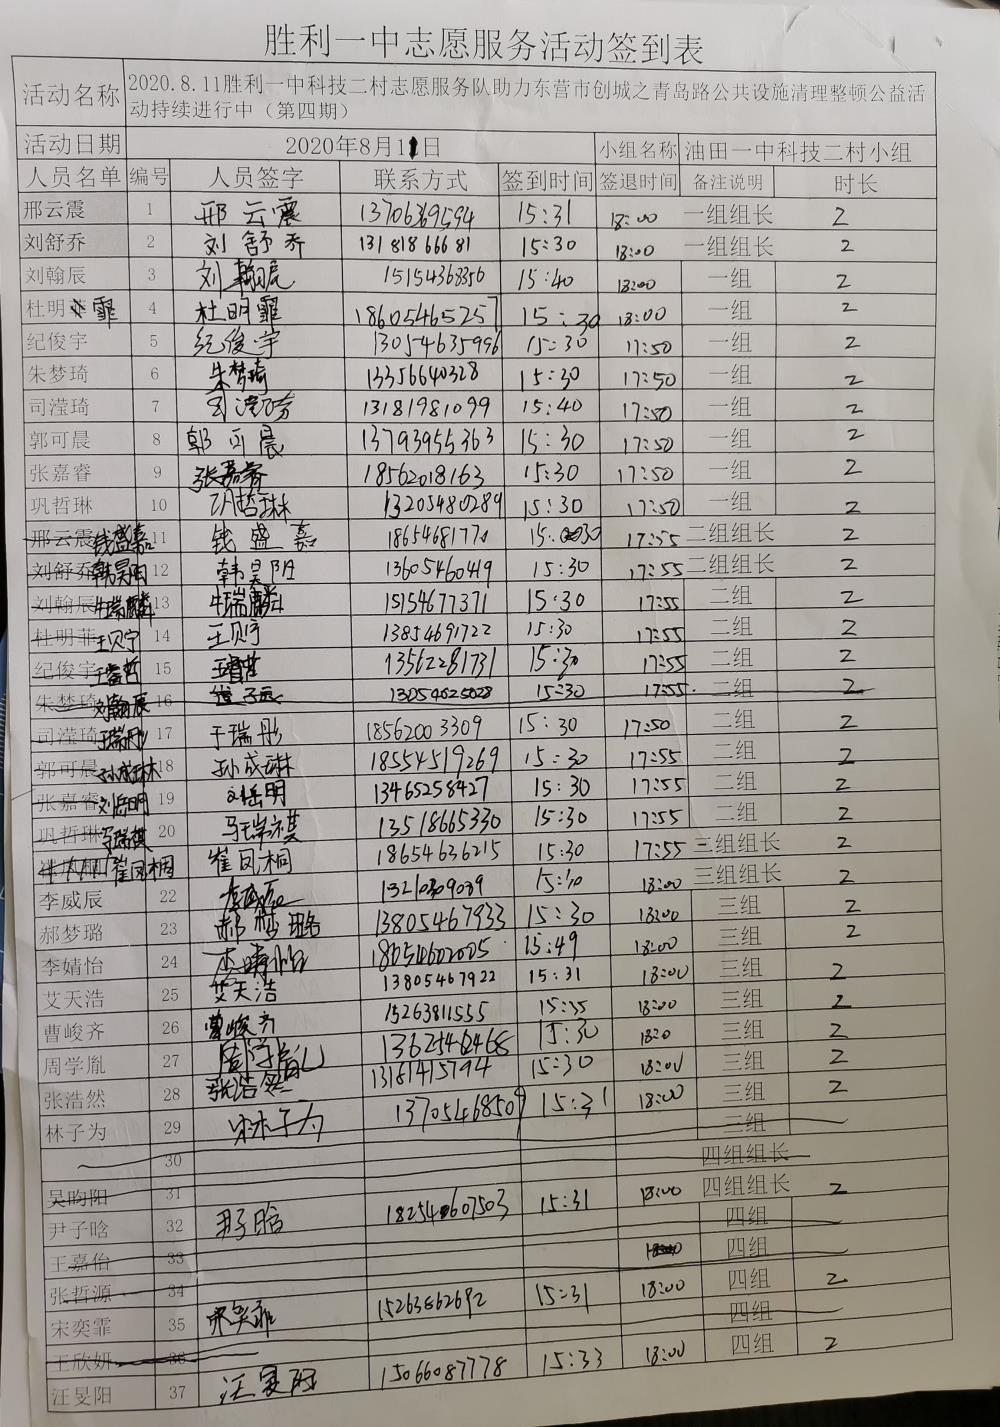 胜利一中志愿服务活动签到表
活动名称 2020.8.11胜利一中科技二村志愿服务队助力东营市创城之青岛路公共设施清理整顿公益活
动持续进行中（第四期）
活动日期 2020年8月11日 小组名称 油田一中科技二村小组
人员名单 编号 人员签字 联系方式 签到时间 签退时间 备注说明 时长
邢云震 1 邢云震 15:31 18:00 一组组长 2
刘舒乔 2 刘舒乔 15:30 18:00 一组组长 2
刘翰辰 3 刘翰辰 15154368356 15:40 18:00 一组 2
杜明霏 4 杜明霏 18605465257 15:30 18:00 一组 2
纪俊宇 5 纪俊宇 13054635996 15:30 17:50 一组 2
朱梦琦 6 朱梦琦 13356640328 15:30 17:50 一组 2
司滢琦 7 司滢琦 13181981099 15:40 17:50 一组 2
郭可晨 8 郭可晨 13793955363 15:30 17:50 一组 2
张嘉睿 9 张嘉睿 18562018163 15:30 17:50 一组 2
巩哲琳 10 巩哲琳 13205480289 15:30 17:50 一组 2
邢云震 钱盛嘉 11 钱盛嘉 17:55 二组组长 2
刘舒乔 韩昊阳 12 韩昊阳 13605460419 15:30 17:55 二组组长 2
刘翰辰 牛瑞麟 13 牛瑞麟 15154677371 15:30 17:55 二组 2
杜明菲 王贝宁 14 王贝宁 13854691722 15:30 17:55 二组 2
纪俊宇 15 13562281731 15:30 17:55 二组 2
朱梦琦 刘翰辰 16 13054625028 15:30 17:55 二组 2
司滢琦 于瑞彤 17 于瑞彤 18562003309 15:30 17:50 二组 2
郭可晨 孙成琳 18 孙成琳 18554519269 15:30 17:55 二组 2
张嘉睿 刘岳明 19 刘岳明 13465258427 15:30 17:55 二组 2
巩哲琳 马瑞祺 20 马瑞祺 13518665330 15:30 17:55 二组 2
崔凤桐 崔凤桐 18654636215 15:30 17:55 三组组长 2
李威辰 22 李威辰 18:00 三组组长 2
郝梦璐 23 郝梦璐 13805467933 15:30 18:00 三组 2
李婧怡 24 李婧怡 15:49 18:00 三组 2
艾天浩 25 艾天浩 13805467922 15:31 18:00 三组 2
曹峻齐 26 曹峻齐 15263811555 15:55 18:00 三组 2
周学胤 27 周学胤 15:30 18:0 三组 2
张浩然 28 张浩然 15:30 18:00 三组 2
林子为 29 林子为 13705468509 15:31 18:00 三组 2
30 三组
吴昀阳 31 四组组长
尹子晗 32 尹子晗 15:31 18:00 四组组长 2
王嘉怡 33 四组
张哲源 34 18:00 四组
宋奕霏 35 宋奕霏 15263862692 15:31 18:00 四组 2
王欣妍 36 四组
汪旻阳 37 汪旻阳 15066087778 15:33 18:00 四组 2